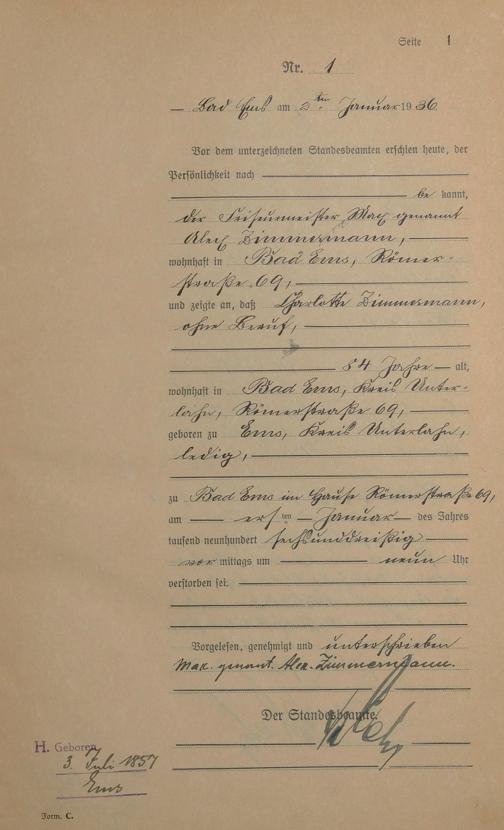 Seite 1
Nr. 1
Bad Ems am 2ten Januar 1936
Vor dem unterzeichneten Standesbeamten erschien heute, der
Persönlichkeit nach
be kannt,
der Friseurmeister Max genannt
Alex Zimmermann,
wohnhaft in Bad Ems, Römer-
straße 69,
und zeigte an, daß Charlotte Zimmermann,
ohne Beruf,
84 Jahre alt,
wohnhaft in Bad Ems, Kreis Unter-
lahn, Römerstraße 69,
geboren zu Ems, Kreis Unterlahn,
ledig,
zu Bad Ems im Hause Römerstraße 69,
am ersten Januar des Jahres
tausend neunhundert sechsunddreißig
vor mittags um neun Uhr
verstorben sei.
Vorgelesen, genehmigt und unterschrieben
Max. genant. Alex. Zimmermann.
Der Standesbeamte.
H. Geboren
3. Juli 1857
Ems
Form. C.